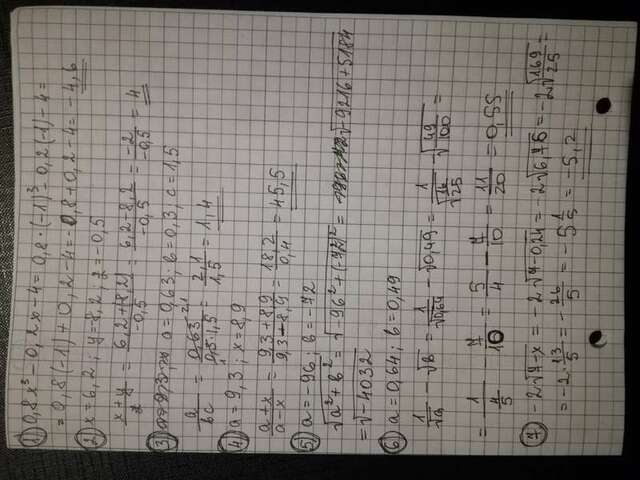 1) 0,8x³ - 0,2x - 4 = 0,8 · (-1)³ - 0,2(-1) - 4 =
= 0,8(-1) + 0,2 - 4 = -0,8 + 0,2 - 4 = -4,6
2) x = 6,2; y = 8,2; z = -0,5
(x + y)/z = (6,2 + 8,2)/-0,5 = (6,2 + 8,2)/-0,5 = -2/-0,5 = 4
3) a = 0,63; b = 0,3; c = 1,5
a/bc = 0,63/0,3·1,5 = 2,1/1,5 = 1,4
4) a = 9,3; x = 8,9
(a + x)/(a - x) = (9,3 + 8,9)/(9,3 - 8,9) = 18,2/0,4 = 45,5
5) a = 96; b = -72
√a² + b² = √-96² + (-72)² = √-9216 + 5184
= √-4032
6) a = 0,64; b = 0,49
1/√a - √b = 1/√0,64 - √0,49 = 1/√16/25 - √49/100 =
= 1/4/5 - 7/10 = 5/4 - 7/10 = 11/20 = 0,55
7) -2√7-x = -2√7-0,24 = -2√6,76 = -2√169/25 =
= -2·13/5 = -26/5 = -5 1/5 = -5,2